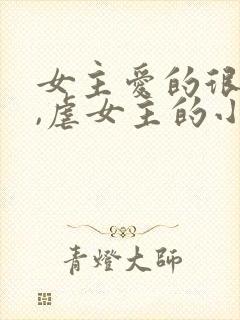 女主爱的很
,虐女主的小
青燈大師